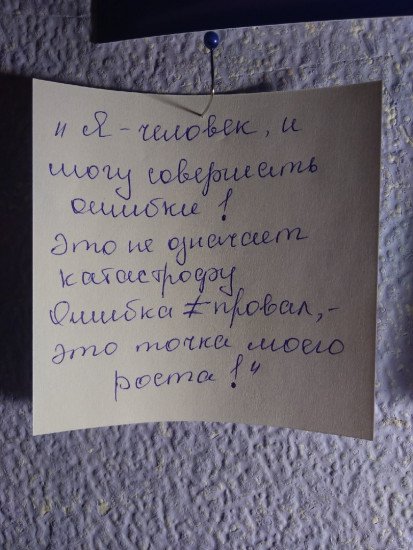 „ Я - человек, и
могу совершать
ошибки !
Это не означает
катастрофу
Ошибка ≠ провал, -
это точка моего
роста ! "